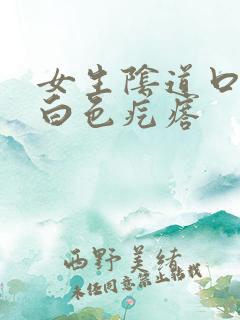 女生陰道口
白色疙瘩
西野美緒
未经同意禁止转载